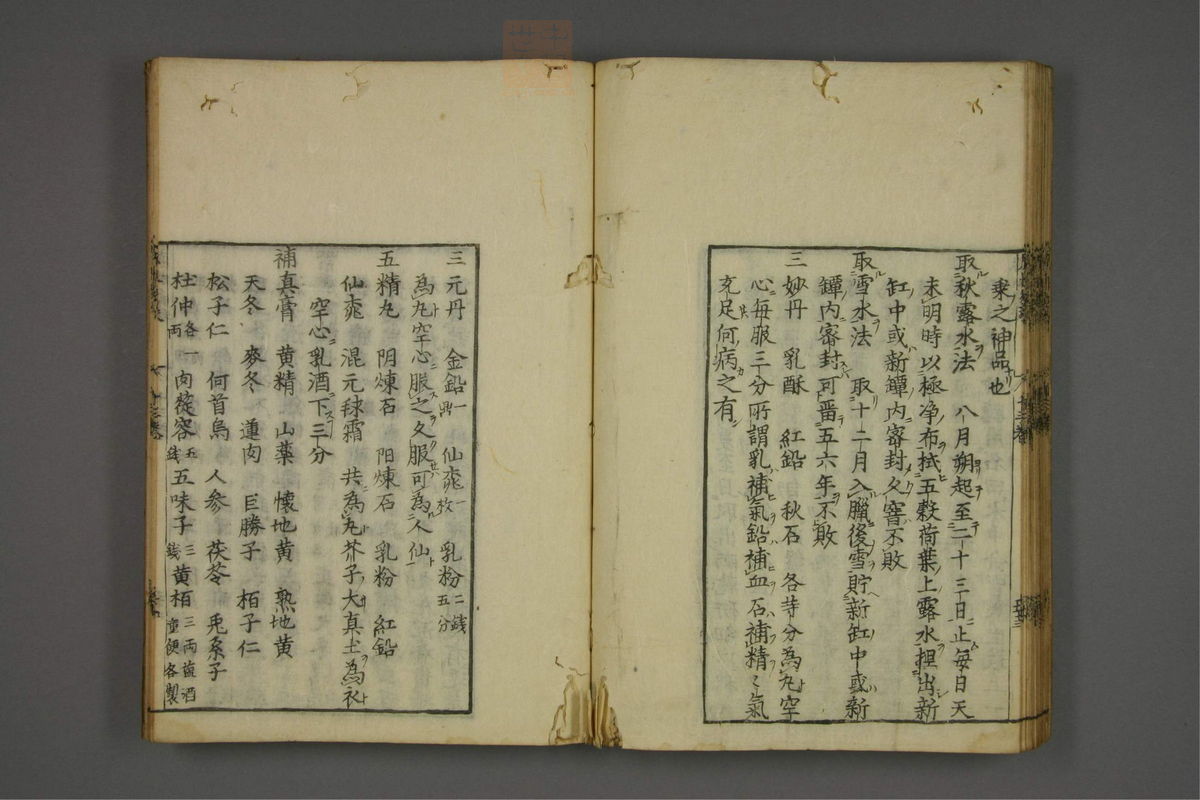 乗之神品也
取秋露水法 八月朔起至二十三日止毎日天
未明時以極浄布拭五穀荷葉上露水捏出新
缸中或新罈内密封久窨不敗
取雪水法 取十二月入臘後雪貯新缸中或新
罈内密封可畱五六年不敗
三妙丹 乳酥 紅鉛 秋石 各等分為丸空
心毎服三分所謂乳補氣鉛補血石補精〻氣
充足何病之有
三元丹 金鉛一鼎 仙桃一枚 乳粉二錢五分
為丸空心服之久服可為人仙
五精丸 阴煉石 阳煉石 乳粉 紅鉛
仙桃 混元毬霜 共為丸芥子大真土為衣
空心乳酒下三分
補真膏 黄精 山薬 懐地黄 熟地黄
天冬 麥冬 蓮肉 巨勝子 栢子仁
松子仁 何首烏 人参 茯苓 兎糸子
杜仲各一両 肉蓯容五錢 五味子三錢 黄栢三両塩酒童便各製